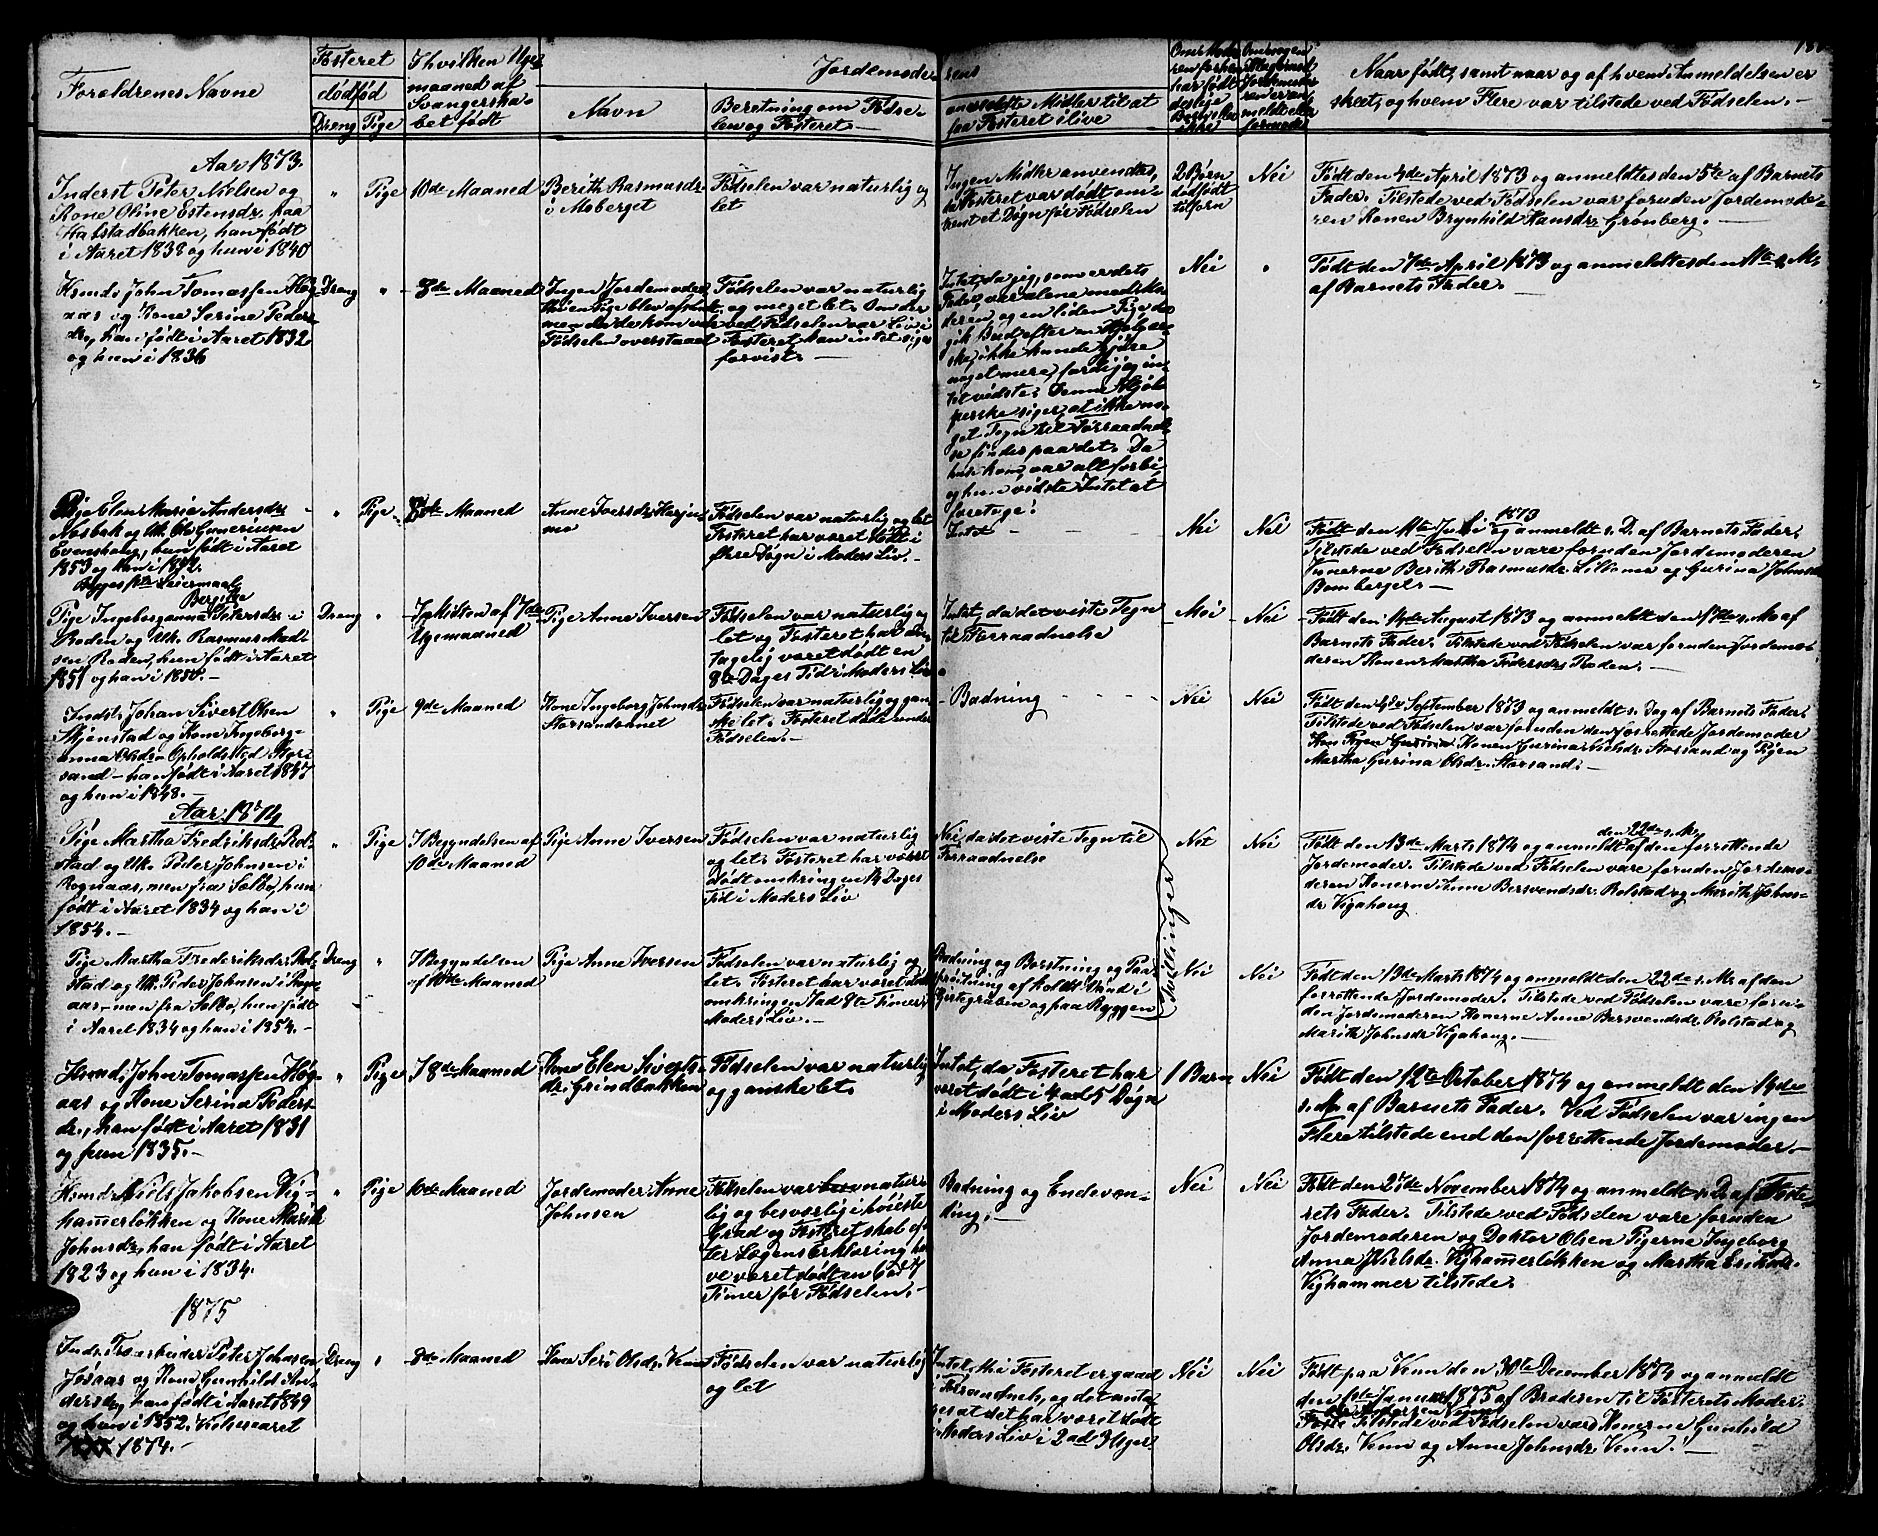 Forældrenes Navne
Fosteret
dødfød
Dreng Pige
I hvilken Uge/
maaned af
Svangerska-
bet født
Jordemode-
rens
Navn
Beretning om Fødse-
len og Fosteret
anvendte Midler til at
faa Fosteret ilive
Om Mode-
ren forhen
har født
Naar født, samt naar og af hvem Anmeldelsen er
skeet, og hvem Flere var tilstede ved Fødselen.-
Aar 1873.
Inderst Peter Nielsen og
Kone Oline Estensdr. paa
Halstadbakken, han født
i Aaret 1838 og hun i 1840
" Pige
10de Maaned
Berith Rasmusdr.
i Moberget
Fødselen var naturlig og
let
Ingen Midler anvendtes,
da Fosteret var dødt om-
trent et Døgn før Fødselen
2 Børn
dødfødt
tilforn
Nei
Født den 4de April 1873 og anmeldtes den 5te af Barnets
Fader. Tilstede ved Fødselen var foruden Jordemode-
ren Konen Brynhild Hansdr. Grønberg.-
Hsmd. John Tomassen Høg-
aas og Kone Serine Peders-
dr., han født i Aaret 1832
og hun i 1836
Dreng "
8de Maaned
Ingen Jordemoder
thi en Pige blev afsendt
men da de kom var
Fødselen overstaaet
Fødselen var naturlig
og meget let. Om der
ved Fødselen var Liv i
Fosteret kan intet siges
forvist.-
Intet, da jeg, som er dets
Fader, var alene med Mo-
deren, og en liden Pige der
gik Bud efter en Hjelper-
ske, ikke kunde gjøre
noget mere, fordi jeg in-
tet vidste. Denne Hjel-
perske siger, at ikke no-
get Tegn til Forraadnel-
se findes paa det. Da
hun kom, var alt forbi,
og hun vidste Intet at
foretage!
Nei
"
Født den 7de April 1873 og anmeldtes den 11te s. M.
af Barnets Fader.-
Pige Elen Maria Andersdr.
Nesbak og Uk. Ole Gunerinsen
Evenshaug, hun født i Aaret
1853 og han i 1842.
Begges 1ste Leiermaal
" Pige
8de Maaned
Anne Iversdr. Hasjem-
mo
Fødselen var naturlig og let
Fosteret har været dødt i
flere Døgn i Moders Liv.-
Intet
Nei
Nei
Født den 11te Juli 1873 og anmeldt s. D. af Barnets Fader.
Tilstede ved Fødselen vare foruden Jordemoderen
Konerne Berith Rasmusdr. Lillemo og Gurina Johnsdr.
Bomberget.-
Pige Ingeborganna Bergitte Petersdr. i
Roden og Uk. Rasmus Mad-
sen Roden, hun født i Aaret
1851 og han i 1850.-
Dreng "
I Midten af 7de
Ugemaaned
Pige Anne Iversen
Fødselen var naturlig og
let og Fosteret har an-
tagelig været dødt en
8te Dages Tid i Moders Liv
Intet, da det viste Tegn
til Forraadnelse
Nei
Nei
Født den 14de August 1873 og anmeldt den 17de s. M. af
Barnets Fader. Tilstede ved Fødselen var foruden Jordemo-
deren Konen Martha Pedersdr. Roden.-
Indst. Johan Sivert Olsen
Skjønstad og Kone Ingeborg-
anna Olsdr. Opholdssted Stor-
sand - han født i Aaret 1847
og hun i 1848.-
" Pige
9de Maaned
Kone Ingeborg Johnsdr.
Storsandvænet
Fødselen var naturlig og gan-
ske let. Fosteret døde under
Fødselen.-
Badning
Nei
Nei
Født den 4de September 1873 og anmeldt s. Dag af Barnets Fader.
Tilstede ved Fødselen var foruden den forrettede Jordemoder
Konen Gurina Nielsdr. Storsand og Pigen
Martha Gurina Olsdr. Storsand.-
Aar 1874
Pige Martha Fredriksdr. Rol-
stad og Uk. Peder Johnsen i
Rognaas, men fra Selbo, hun
født i Aaret 1834 og han i
1854.-
" Pige
I Begyndelsen af
10de Maaned
Pige Anne Iversen
Fødselen var naturlig
og let. Fosteret har været
dødt omkring en 14 Dages
Tid i Moders Liv
Nei, da det viste Tegn til
Forraadnelse
Tvillinger
Nei
Nei
Født den 13de Marts 1874 og anmeldt den 22de s. M. af den forrettende
Jordemoder. Tilstede ved Fødselen vare foruden Jordemo-
deren Konerne Anne Bersvendsdr. Rolstad og Marith Johns-
dr. Vigahaug
Pige Martha Frederiksdr. Rol-
stad og Uk. Peder Johnsen i Rogn-
aas, men fra Selbo, hun født
i Aaret 1834 og han i 1854.-
Dreng "
I Begyndelsen
af 10de Maaned
Pige Anne Iversen
Fødselen var naturlig og
let. Fosteret har været dødt
omkring en 7 ad 8te Timer i
Moders Liv.-
Badning og Børstning og Paa-
sprøitning af koldt Vand i
Hjertegruben og paa Ryggen
Nei
Nei
Født den 13de Marts 1874 og anmeldt den 22de s. M. af den
forrettende Jordemoder. Tilstede ved Fødselen vare foru-
den Jordemoderen Konerne Anne Bersvendsdr. Rolstad og
Marith Johnsdr. Vigahaug.-
Hsmd. John Tomassen Høg-
aas og Kone Serina Peders-
dr., han født i Aaret 1831
og hun 1835.-
" Pige
I 8de Maaned
Kone Elen Siverts-
dr. Grindbakken
Fødselen var naturlig
og ganske let.
Intet, da Fosteret har
været dødt i 4 ad 5 Døgn
i Moders Liv
1 Barn
Nei
Født den 12te October 1874 og anmeldt den 14de
s. M. af Barnets Fader. Ved Fødselen var ingen
Flere tilstede end den forrettende Jordemoder.-
Hsmd. Niels Jakobsen Vig-
hamerløkken og Kone Marit
Johnsdr., han født i Aaret
1823 og hun i 1834.
" Pige
10de Maaned
Jordemoder Anne
Johnsen
Fødselen var natur-
lig og besværlig i høieste
Grad og Fosteret skal ef-
ter Lægens Erklæring ha-
ve været dødt en 6 ad 7
Timer før Fødselen.-
Badning og Endeven-
ding.-
Nei
Nei
Født den 21de November 1874 og anmeldt s. D. af Foste-
rets Fader. Tilstede ved Fødselen vare foruden
Jordemoderen og Doktor Olsen Pigerne Ingeborg
Anna Nielsdr. Vighamerløkken og Martha Eriksdr.
Vighammer tilstede.
1875
Inds. Træarbeider Peter Johnsen
Jøsaas og Kone Gunhild An-
dersdr., han født i Aaret 1849
og hun i 1852. Vielsesaaret
1874.-
Dreng "
8de Maaned
Kone Siri Olsdr. Venn
Fødselen var naturlig
og let
Intet, thi Fosteret er gaaet
i Forraadnels, og det anta-
ges at det har været dødt
i Moders Liv i 2 ad 3 Uger.
Nei
Nei
Født paa Venn den 30te December 1874 og anmeldt
den 1ste Januar 1875 af Broderen til Fosterets Moder.
Tilstede ved Fødselen vare Konerne Gunhild
Olsdr. Venn og Anne Johnsdr. Venn.-